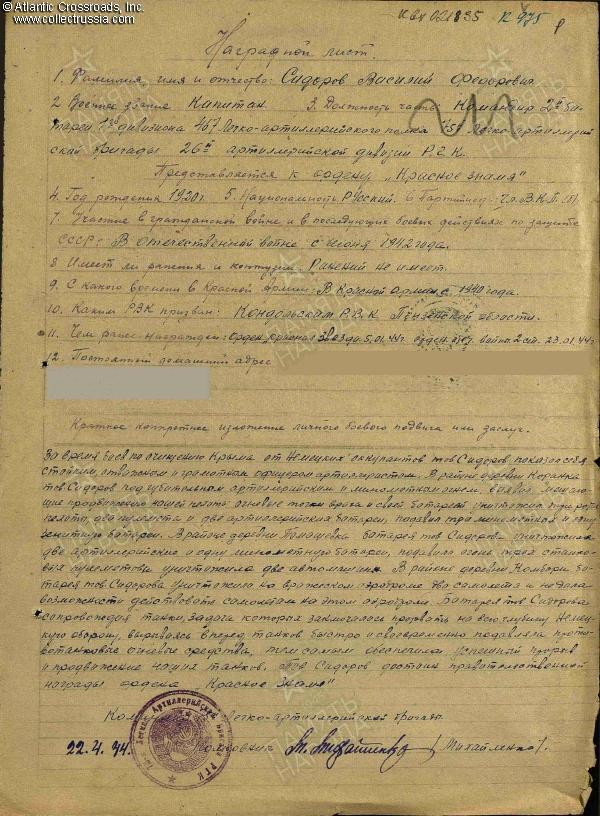 © Atlantic Crossroads, Inc.
www.collectrussia.com
к вх 021835 к 975
Наградной лист.
1. Фамилия имя и отчество: Сидоров Василий Федорович
2. Военное звание Капитан 3. Должность часть Командир 2й ба-
тареи 1го дивизиона 467 Легко-артиллерийского полка Легко-артиллерий
ской бригады 26й артиллерийской дивизии Р.Г.К.
Представляется к ордену „Красное знамя"
4. Год рождения 1920г. 5. Национальность Русский. 6 Партийность: чл. В.К.П.(б)
7. Участие в гражданской войне и в последующих боевых действиях по защите
СССР: В отечественной войне с июня 1942 года.
8. Имеет ли ранения и контузии: Ранений не имеет.
9. С какого времени в Красной Армии: В Красной армии с 1940 года.
10. Каким РВК призван: Кондольским Р.В.К. Пензенской области.
11. Чем ранее награжден: Орден „Красная звезда 5.01.44г. отеч. война 2 ст. 23.01.44г.
12. Постоянный домашний адрес
Краткое конкретное изложение личного боевого подвига или заслуг.
За время боев по очищению Крыма от Немецких оккупантов тов Сидоров показал себя
стойким, отважным и грамотным офицером артиллеристом. В районе деревни
тов Сидоров под губительным артиллерийским и минометным огнем выявил мешаю-
щие продвижению нашей пехоты огневые точки врага и своей батареей уничтожил
пехоты, два пулемета и две артиллерийских батареи, подавил три минометных и одну
зенитную батареи. В районе деревни Томашевка батарея тов Сидорова уничтожила
две артиллерийские и одну минометную батареи, подавила огонь трех станко-
вых пулеметов уничтожила две автомашины. В районе деревни ба-
тарея тов Сидорова уничтожила на вражеском аэродроме два самолета и не дала
возможности действовать самолетам на этом аэродроме. Батарея тов Сидорова
сопровождая танки, задача которых заключалась прорвать на всю глубину Немец-
кую оборону, вырываясь вперед танков быстро и своевременно подавляла проти-
вотанковые огневые средства, тем самым обеспечила успешный прорыв
и продвижение наших танков. Тов Сидоров достоин правительственной
награды ордена „Красное Знамя"
Легко-артиллерийской бригады
22.4.44. Полковник (Михайленко).
ПАМЯТЬ НАРОДА